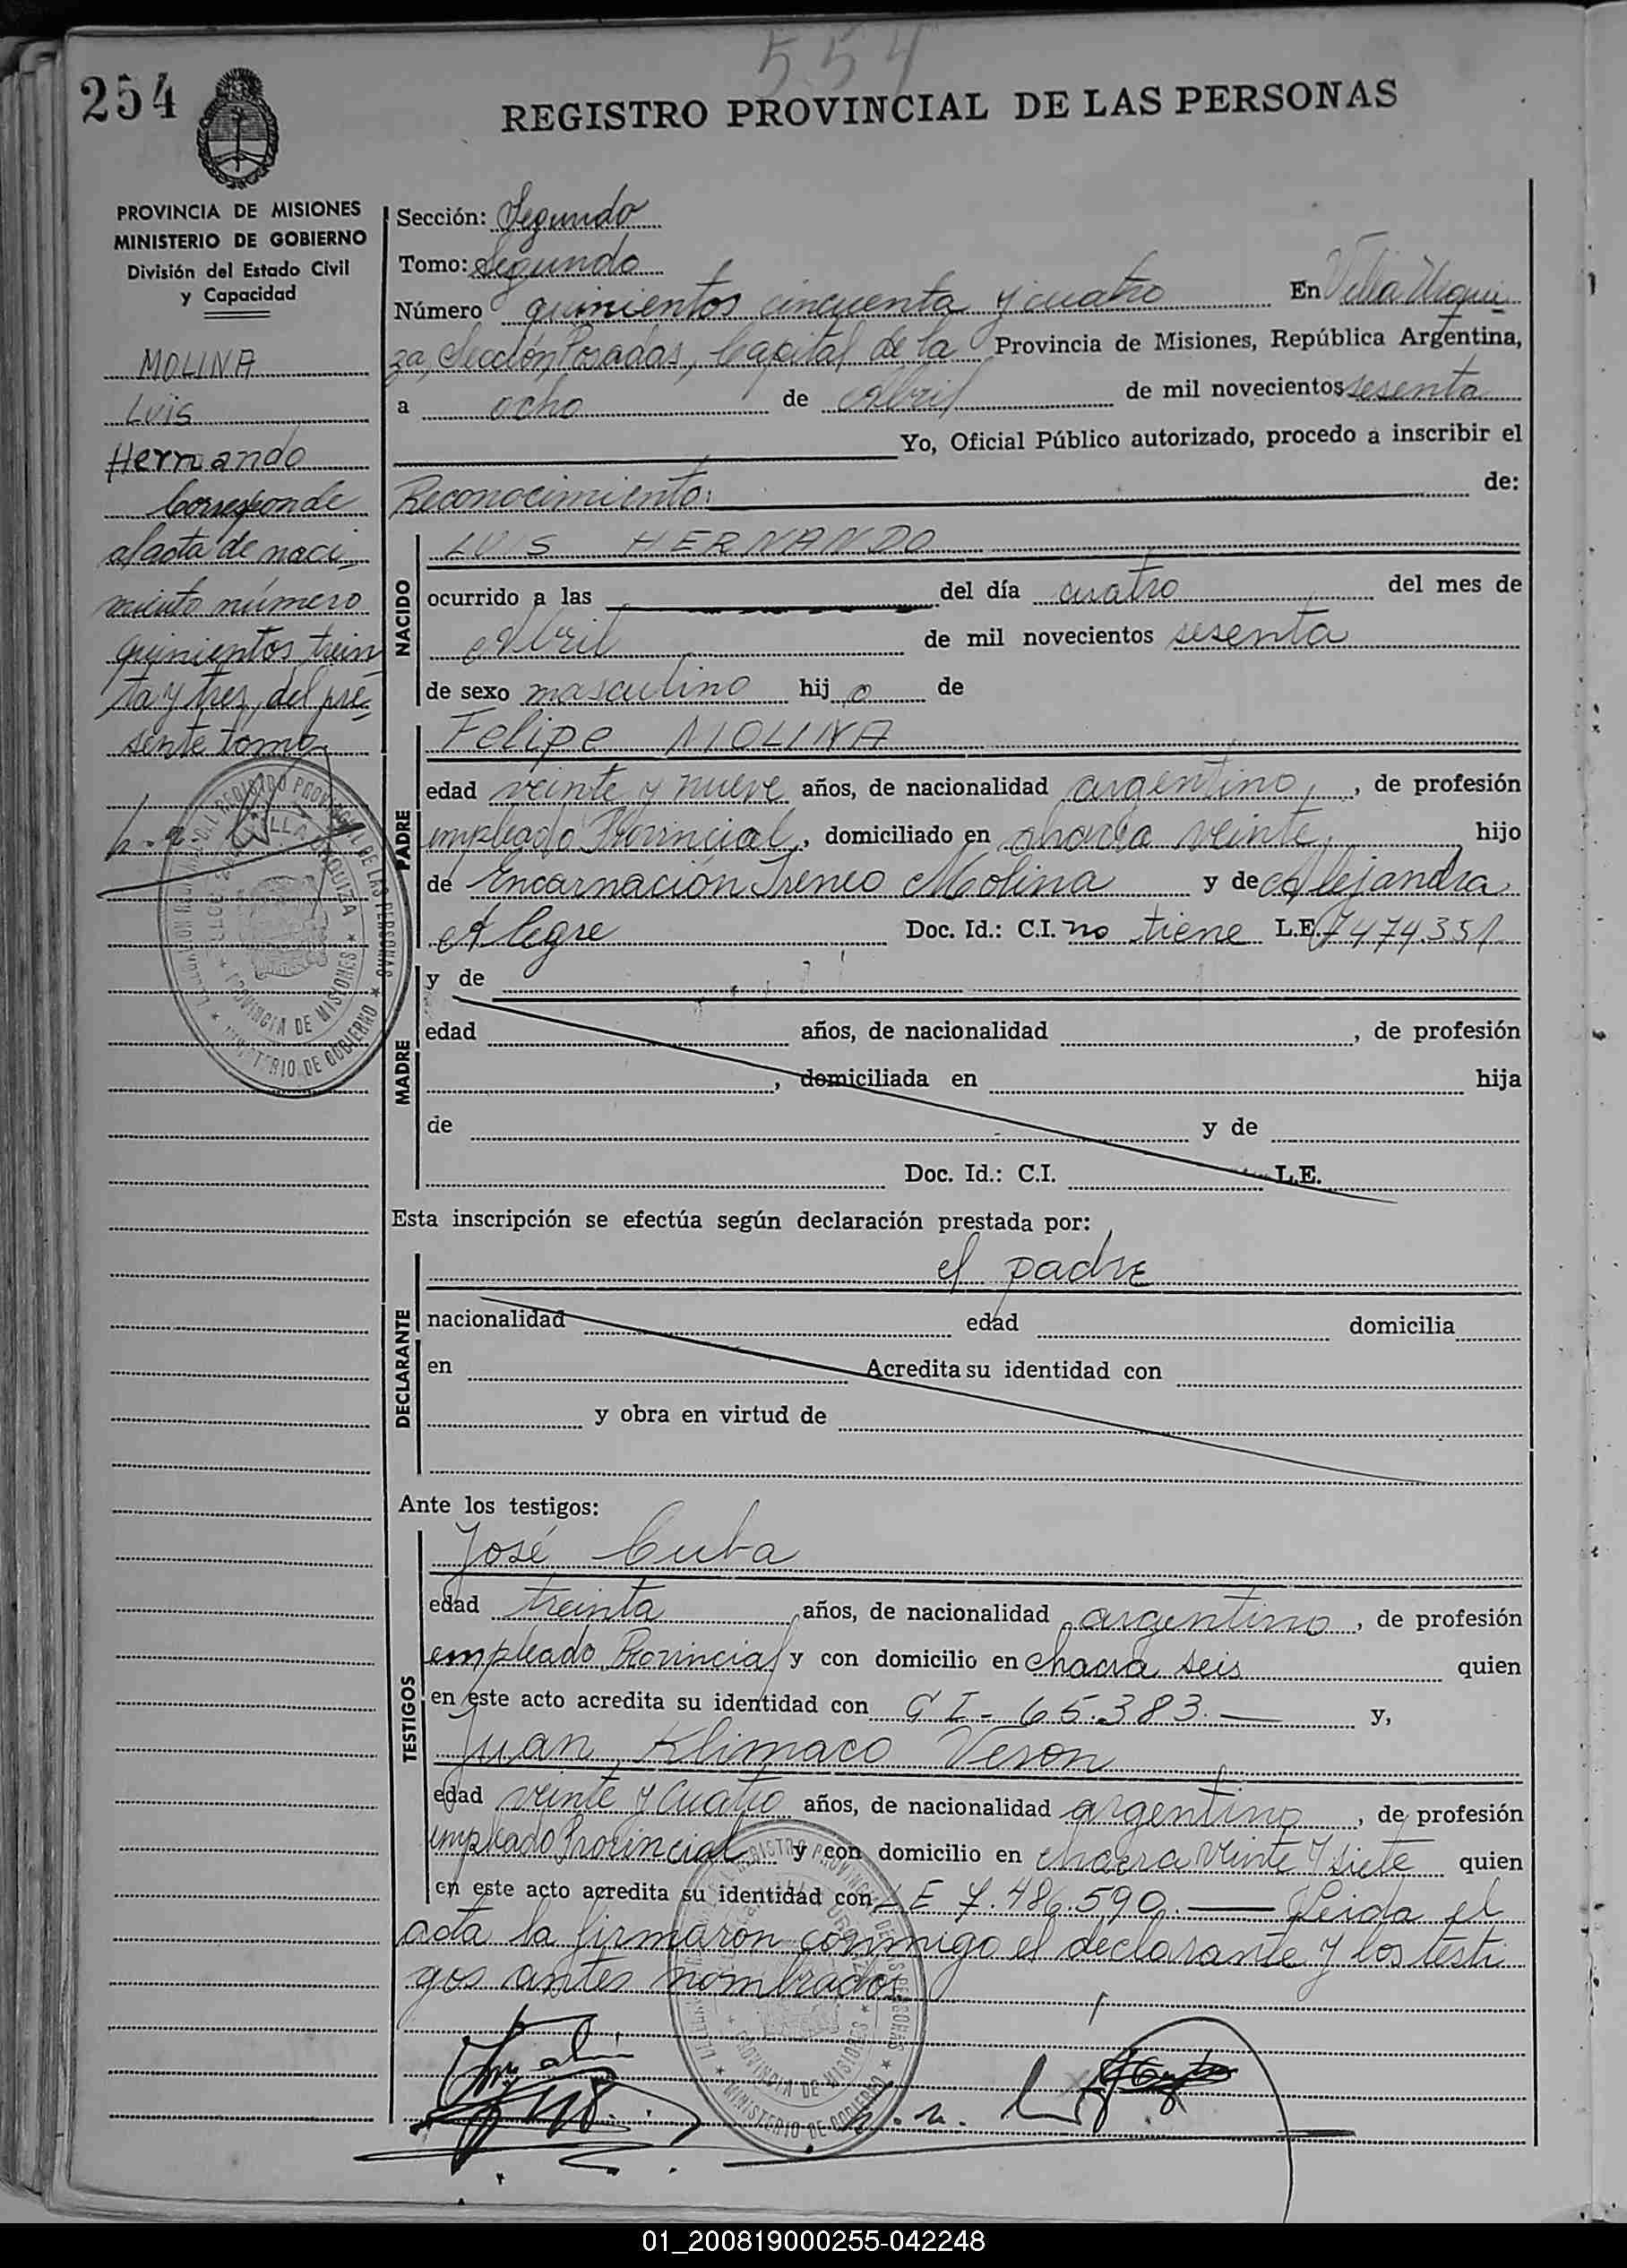 554
254
REGISTRO PROVINCIAL DE LAS PERSONAS
PROVINCIA DE MISIONES
MINISTERIO DE GOBIERNO
División del Estado Civil
y Capacidad
MOLINA
Luis
Hernando
Corresponde
al acta de naci-
miento número
quinientos trein
ta y tres, del pre-
sente tomo
Sección: Segundo
Tomo: Segundo
Número quinientos cincuenta y cuatro En Villa Urqui-
za, Sección Posadas, Capital de la Provincia de Misiones, República Argentina,
a ocho de Abril de mil novecientos sesenta
Yo, Oficial Público autorizado, procedo a inscribir el
Reconocimiento: de:
NACIDO
LUIS HERNANDO
ocurrido a las del día cuatro del mes de
Abril de mil novecientos sesenta
de sexo masculino hijo de
PADRE
Felipe MOLINA
edad veinte y nueve años, de nacionalidad argentino, de profesión
empleado Provincial, domiciliado en chacra veinte, hijo
de Encarnación Ireneo Molina y de Alejandra
Alegre Doc. Id.: C.I. no tiene L.E. 7474.351
MADRE
y de
edad años, de nacionalidad , de profesión
, domiciliada en hija
de y de
Doc. Id.: C.I. L.E.
Esta inscripción se efectúa según declaración prestada por:
DECLARANTE
el padre
nacionalidad edad domicilia
en Acredita su identidad con
y obra en virtud de
Ante los testigos:
TESTIGOS
José Cuba
edad treinta años, de nacionalidad argentino, de profesión
empleado Provincial y con domicilio en chacra seis quien
en este acto acredita su identidad con C I - 65.383.— y,
Juan Klimaco Veron
edad veinte y cuatro años, de nacionalidad argentino, de profesión
empleado Provincial y con domicilio en chacra veinte y siete quien
en este acto acredita su identidad con L E 7.486.590.— Leida el
acta la firmaron conmigo el declarante y los testi
gos antes nombrados
01_200819000255-042248